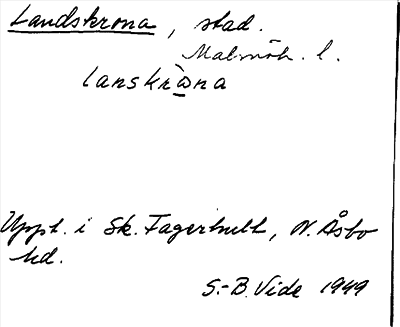 Landskrona, stad.
Malmöh. l.
lanskrὼna
Uppt. i Sk. Fagerhult, N. Åsbo
hd.
S.-B. Vide 1949